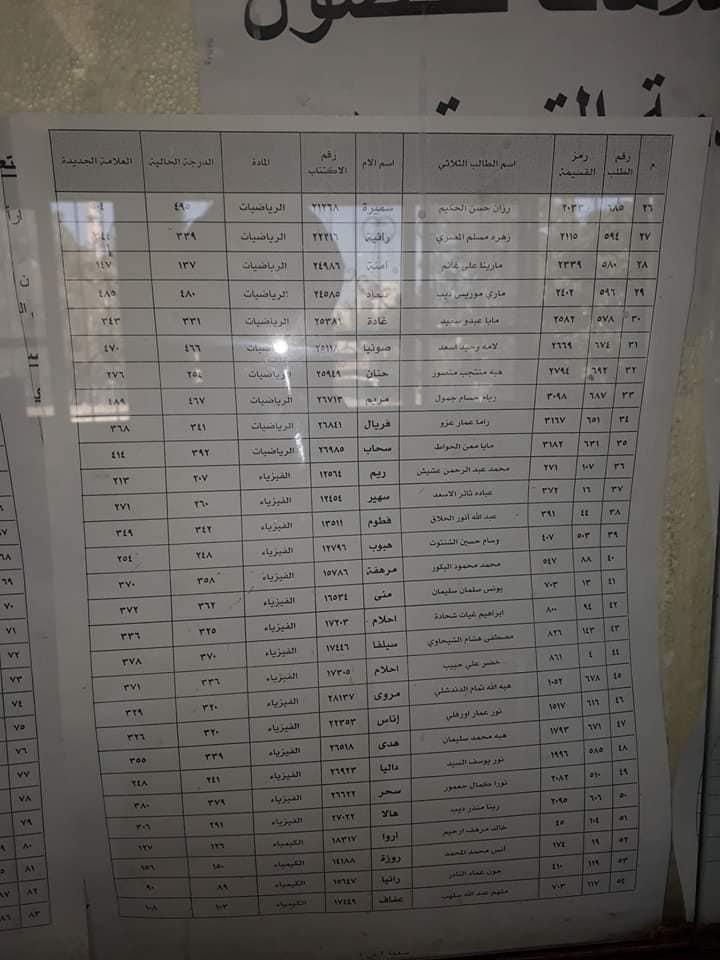 م رقم الطلب رمز القسيمة اسم الطالب الثلاثي اسم الام رقم الاكتتاب المادة الدرجة الحالية العلامة الجديدة
٢٦ ٦٨٥ ٢٠٣٣ رزان حسن الحكيم سميرة ٢١٢٦٨ الرياضيات ٤٩٥
٢٧ ٥٩٤ ٢١١٥ زهره مسلم المصري رانية ٢٢٢١٦ الرياضيات ٣٣٩
٢٨ ٥٨٠ ٢٣٣٩ مارينا علي غانم امنة ٢٤٩٨٦ الرياضيات ١٣٧ ١٤٧
٢٩ ٥٩٦ ٢٤٠٢ ماري موريس ديب سعاد ٢٤٥٨٥ الرياضيات ٤٨٠ ٤٨٥
٣٠ ٥٧٨ ٢٥٨٢ مايا عبدو سعيد غادة ٢٥٣٨١ الرياضيات ٣٣١ ٣٤٣
٣١ ٦٧٤ ٢٦٦٩ لامه وحيد اسعد صونيا ٢٥١١٨ الرياضيات ٤٦٦ ٤٧٠
٣٢ ٦٩٢ ٢٧٩٤ هبه منتجب منصور حنان ٢٥٩٤٩ الرياضيات ٢٥٤ ٢٧٦
٣٣ ٦٨٧ ٣٠٩٨ ريام حسام حمول مريم ٢٦٧١٣ الرياضيات ٤٦٧ ٤٨٩
٣٤ ٦٥١ ٣١٦٧ راما عمار عزو فريال ٢٦٨٤١ الرياضيات ٣٤١ ٣٦٨
٣٥ ٦٣١ ٣١٨٢ مايا معن الحواط سحاب ٢٦٩٨٥ الرياضيات ٣٩٢ ٤١٤
٣٦ ١٠٧ ٢٧١ محمد عبد الرحمن عشيش ريم ١٢٥٦٤ الفيزياء ٢٠٧ ٢١٣
٣٧ ١٦ ٣٧٢ عباده ثائر الاسعد سهير ١٢٤٥٤ الفيزياء ٢٦٠ ٢٧١
٣٨ ٤٤ ٣٩١ عبد الله أنور الحلاق فطوم ١٣٥١١ الفيزياء ٣٤٢ ٣٤٩
٣٩ ٥٠٣ ٤٠٧ وسام حسين الشنتوت هبوب ١٢٧٩٦ الفيزياء ٢٤٨ ٢٥٤
٤٠ ٨٨ ٥٤٧ محمد محمود البكور مرهفة ١٥٧٨٦ الفيزياء ٣٥٨ ٣٧٠
٤١ ١٣ ٧٠٣ يونس سلمان سليمان منى ١٦٥٣٤ الفيزياء ٣٦٢ ٣٧٢
٤٢ ٩٤ ٨٠٠ ابراهيم غياث شحادة احلام ١٧٢٠٣ الفيزياء ٣٢٥ ٣٣٦
٤٣ ١٤٣ ٨٢٦ مصطفى هشام الشيحاوي سيلفا ١٧٤٤٦ الفيزياء ٣٧٠ ٣٧٨
٤٤ ٤ ٨٦١ خضر علي حبيب احلام ١٧٣٠٥ الفيزياء ٣٣٦ ٣٧١
٤٥ ٦٧٨ ١٠٥٢ هبه الله تمام الدندشلي مروى ٢٨١٣٧ الفيزياء ٣٢٠ ٣٢٩
٤٦ ٦١٦ ١٥١٧ نور عمار اورفلي إناس ٢٢٣٥٣ الفيزياء ٣٢٠ ٣٢٦
٤٧ ٦٧١ ١٧٩٣ هبه محمد سليمان هدى ٢٦٥١٨ الفيزياء ٣٣٩ ٣٥٥
٤٨ ٥٨٥ ١٩٩٦ نور يوسف السيد داليا ٢٦٩٢٣ الفيزياء ٢٤١ ٢٤٨
٤٩ ٥١٠ ٢٠٨٢ نورا كمال جمور سحر ٢٦٦٢٢ الفيزياء ٣٧٩ ٣٨٠
٥٠ ٦٠٦ ٢٠٩٥ رينا منذر ديب هالا ٢٧٠٢٢ الفيزياء ٢٩١ ٣٠٦
٥١ ١٠٤ ٤٥ خالد مرهف ارحيم اروا ١٨٣١٧ الكيمياء ١٢٦ ١٢٧
٥٢ ١٩ ١٧٤ أنس محمد المحمد روزة ١٤١٨٨ الكيمياء ١٥٠ ١٥٦
٥٣ ١١٩ ٤١٠ جون عماد النادر رانيا ١٥٦٤٧ الكيمياء ٨٩ ٩٠
٥٤ ١١٧ ٧٠٣ ملهم عبد الله سلهب عفاف ١٧٤٤٩ الكيمياء ١٠٣ ١٠٨
٧٠
٧١
٧٢
٧٣
٧٤
٧٥
٧٦
٧٧
٧٨
٧٩
٨٠
٨١
٨٢
٨٣